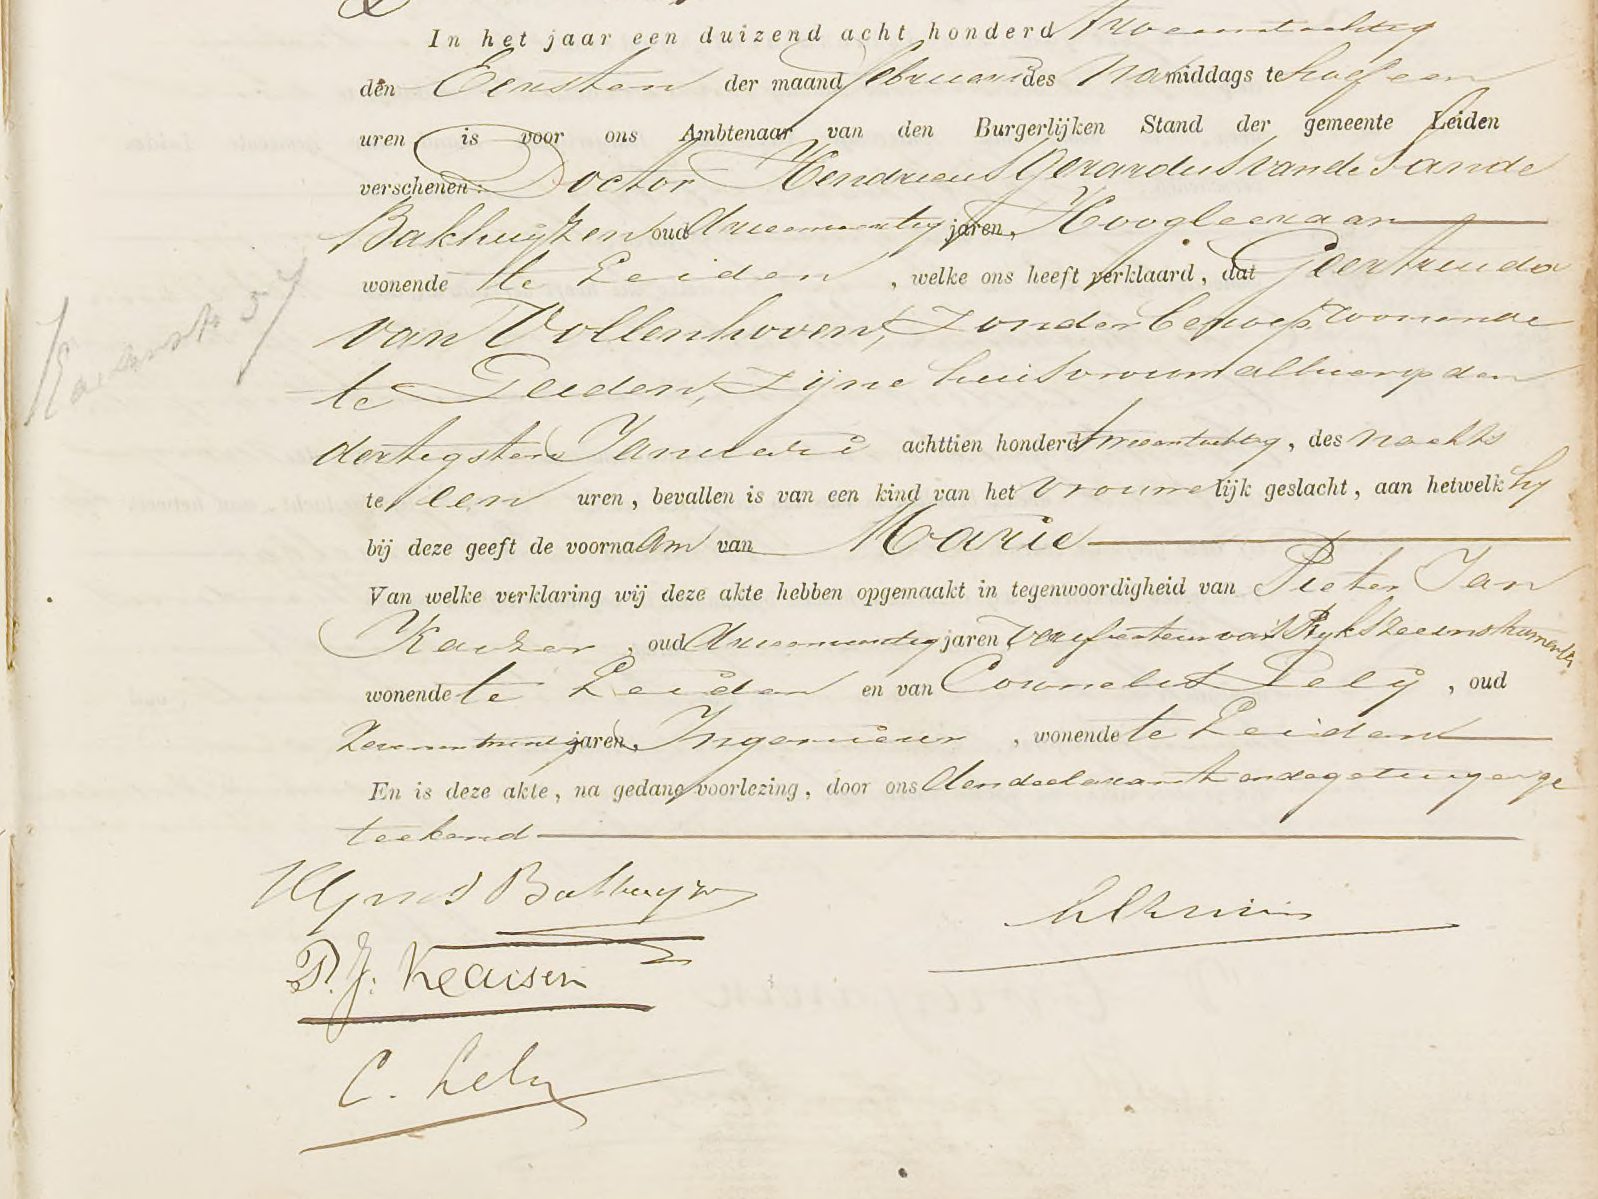 In het jaar een duizend acht honderd tweeentachtig
den Eersten der maand februari des Namiddags te half een
uren is voor ons Ambtenaar van den Burgerlijken Stand der gemeente Leiden
verschenen: Doctor Hendricus Gerardus van de Sande
Bakhuijzen oud drieenveertig jaren, Hoogleeraar
wonende te Leiden, welke ons heeft verklaard, dat Geertruida
van Vollenhoven, zonder beroep, wonende
te Leiden, zijne huisvrouw alhier op den
dertigsten Januari achttien honderd tweeentachtig, des nachts
te een uren, bevallen is van een kind van het vrouwelijk geslacht, aan hetwelk hij
bij deze geeft de voornaam van Marie
Van welke verklaring wij deze akte hebben opgemaakt in tegenwoordigheid van Pieter Jan
Kaiser, oud drieenveertig jaren Verificateur van 's Rijks zeeinstrumenten
wonende te Leiden en van Cornelis Lely, oud
zevenentwintig jaren, Ingenieur, wonende te Leiden
En is deze akte, na gedane voorlezing, door ons den declarant en de getuigen ge
teekend
HGvdS Bakhuyzen
P. J. Kaiser
C. Lely